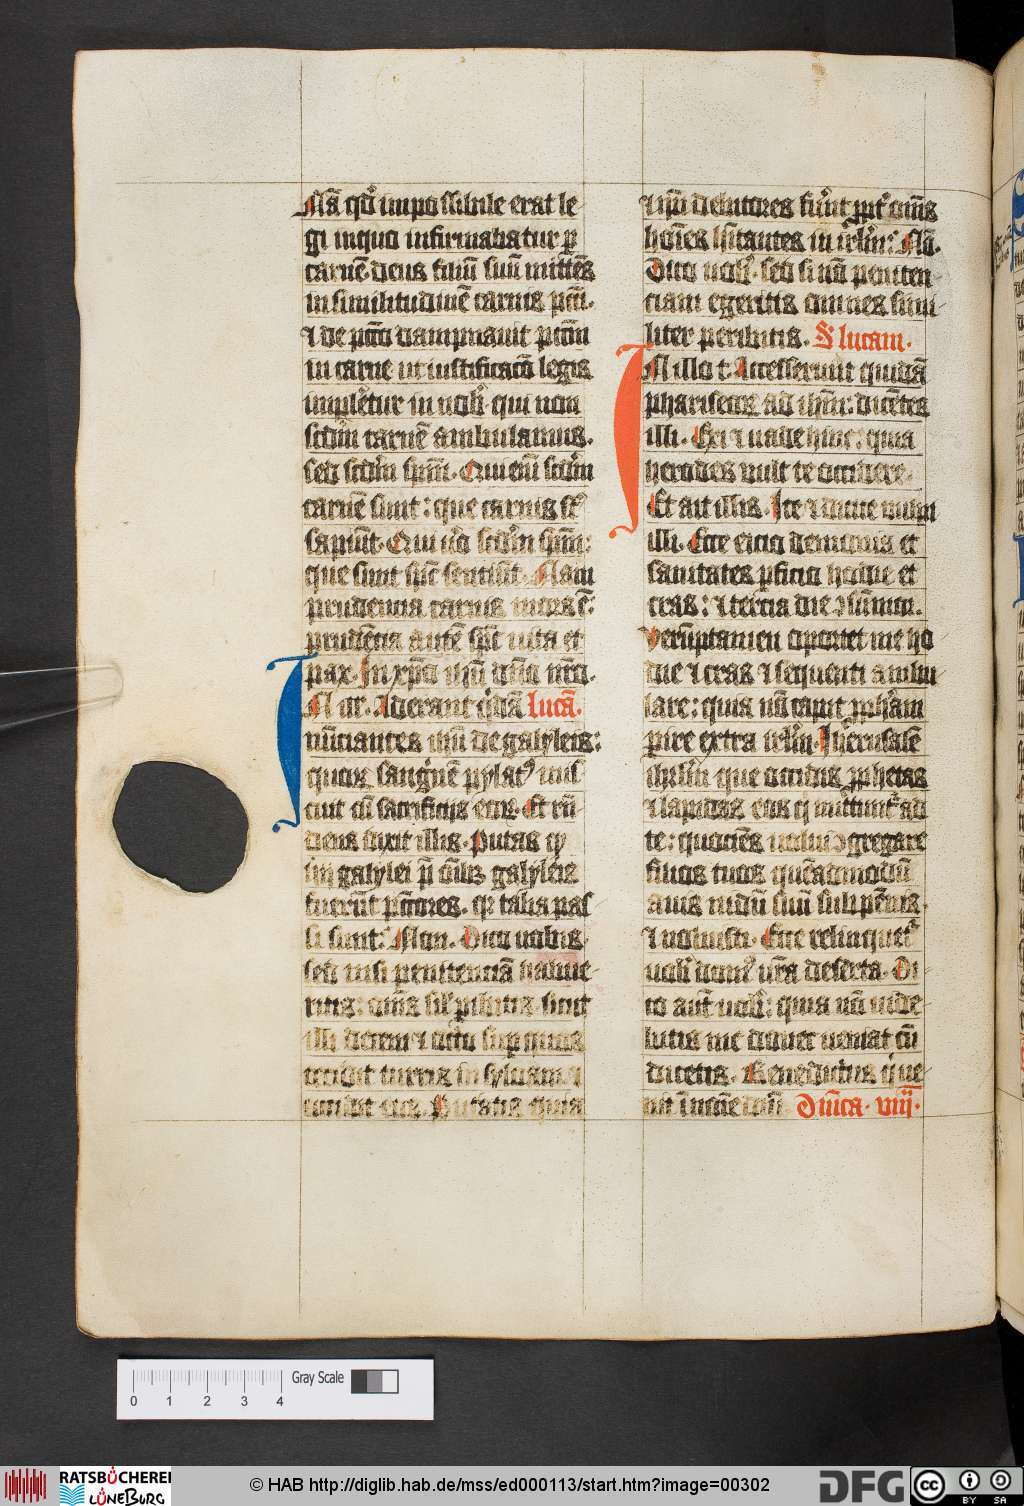 Nā qd' impossibile erat le
gi in quo infirmabatur ꝑ
carnē. deus filiū suū mittēs
in similitudinē carnis pcti.
⁊ de pctō dampnauit pctm̄
in carne ut iustificacō legis
implētur in nobꝭ. qui non
scdm̄ carnē ambulamus.
sed scdm̄ spm̄. Qui em̄ scdm̄
carnē sunt: que carnis sī
sapiūt. Qui u'o scdm̄ spm̄:
que sunt spc̄ sentiūt. Nam
prudencia carnis mors ē:
prudēcia autē spc̄ uita et
pax. In xp̄o ihū dn̄o nr̄o.
IN ill'. Aderant q'dā lucā.
nūciantes ihū de galyleis:
quoꝝ sanguīnē pylatꝰ mis
cuit cū sacrificijs eoꝝ. Et rn̄
dens dixit illis. Putas ꝙ
hij galylei p̄ oībꝫ galyleis
fuerūt pctōres. qꝛ talia pas
si sunt: Non. Dico uobis.
sed nisi penitenciā habue
ritis: oms̄ sil' ꝑibitis. sicut
illi decem ⁊ octo sup quos
cecidit turris in syloam ⁊
occidit eos. Putatis quia
⁊ ip̄i debitores fu'int ꝓpt' oms̄
hoīes h'itantes in irl'm: Nō.
Dico uobꝭ. sed si nō peniten
ciam egeritis omnes simi
liter peribitis. S' lucam.
IN illo t'. Accesserunt quidā
pharisеos ad ihm̄: dicētes
illi. Exi ⁊ uade hinc: quia
herodes uult te occidere.
Et ait illis. Ite ⁊ dicite uulpi
illi. Ecce eicio demonia et
sanitates ꝑficio hodie et
cras: ⁊ tercia die ↄsumor.
Verūptamen oportet me ho
die ⁊ cras ⁊ sequenti ambu
lare: quia nō capit ꝓpham
ꝑire extra irl'm. Iherusalē
ihrl'm que occidis ꝓphetas
⁊ lapidas eos q' mittunt' ad
te: quociēs uolui ↄgregare
filios tuos quēadmodū
auis nidū suū sub pēnis.
⁊ noluisti. Ecce relinquet'
uobꝭ domꝰ ur̄a deserta. Di
co aut' uobꝭ: quia nō uide
bitis me donec ueniat cū
dicetis. Benedictus q' ue
nit ī noīe dn̄i. Dn̄ica. viij.
Gray Scale
0 1 2 3 4
RATSBÜCHEREI
LÜNEBURG
© HAB http://diglib.hab.de/mss/ed000113/start.htm?image=00302
DFG
cc BY SA